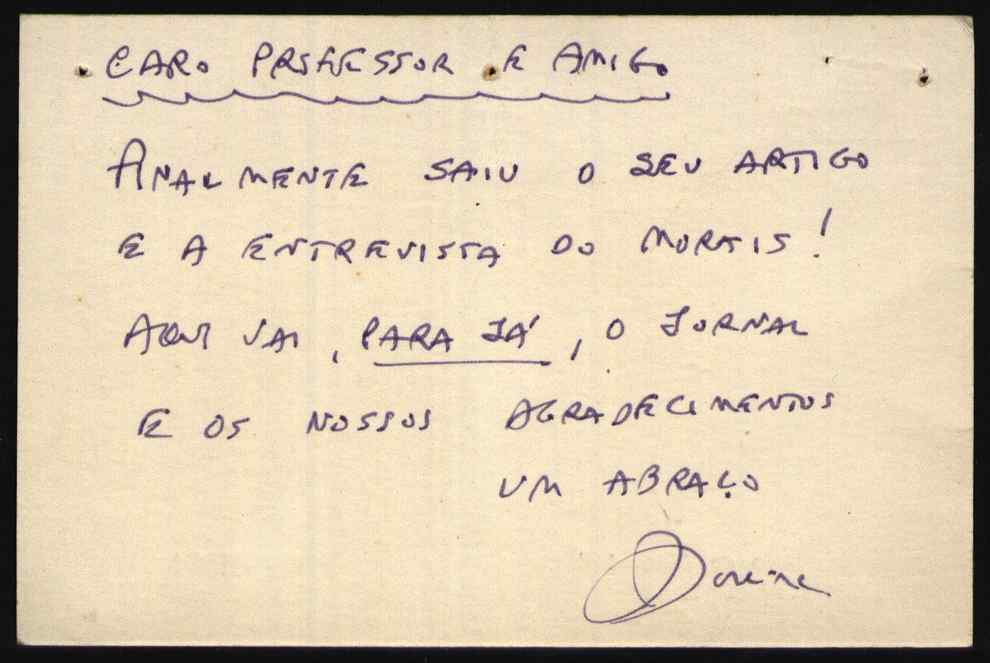 CARO PROFESSOR E AMIGO
FINALMENTE SAIU O SEU ARTIGO
E A ENTREVISTA DO MORAIS!
AQUI VAI, PARA JÁ, O JORNAL
E OS NOSSOS AGRADECIMENTOS
UM ABRAÇO